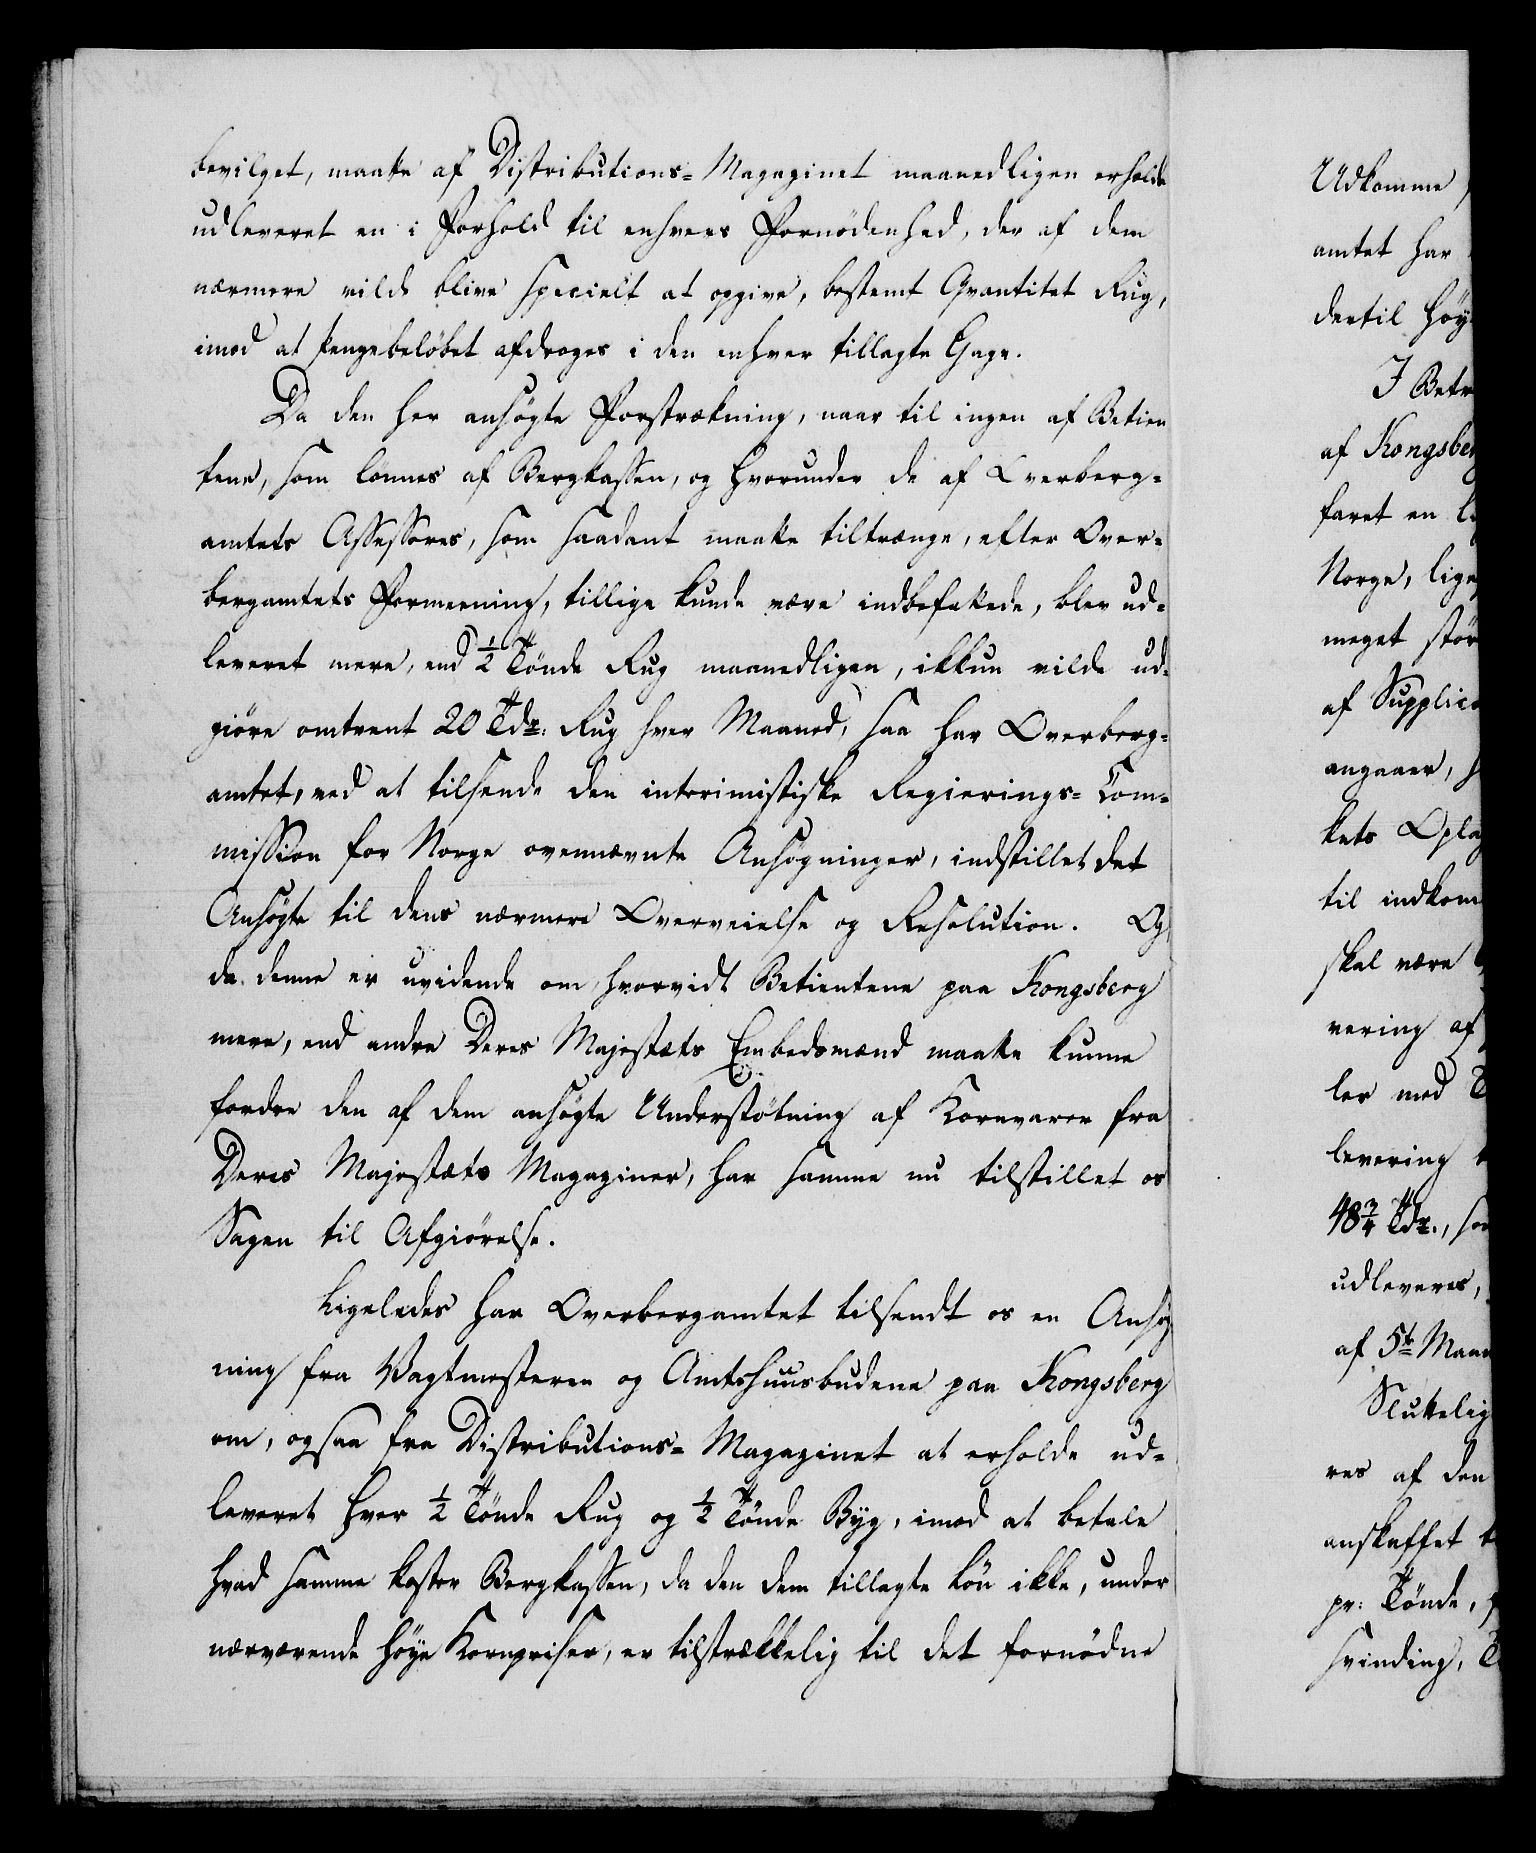 bevilget, maatte af Distributions= Magazinet maanedligen erholde
udleveret en i Forhold til enhvers Fornödenhed, der af dem
nærmere vilde blive specielt at opgive, bestemt Qvantitet Rug,
imod at Pengebelöbet afdroges i den enhver tillagte Gage.
Da den her ansögte Forstrækning, naar til ingen af Betien
tene, som lönnes af Bergkassen, og hvorunder de af Overberg=
amtets Assessores, som saadant maatte tiltrænge, efter Over=
bergamtets Formeening, tillige kunde være indbefattede, blev ud=
leveret mere, end ½ Tönde Rug maanedligen, ikkun vilde ud=
giöre omtrent 20 Tdr: Rug hver Maaned, saa har Overberg=
amtet, ved at tilsende den interimistiske Regierings= Com=
mission for Norge ovennævnte Ansögninger, indstillet det
Ansögte til dens nærmere Overveielse og Resolution. Og,
da denne er uvidende om, hvorvidt Betientene paa Kongsberg
mere, end andre Deres Majestæts Embedsmænd maatte kunne
fordre den af dem ansögte Understötning af Kornvarer fra
Deres Majestæts Magaziner, har samme nu tilstillet os
Sagen til Afgiörelse.
Ligeledes har Overbergamtet tilsendt os en Ansög
ning fra Vagtmesteren og Amtshuusbudene paa Kongsberg
om, ogsaa fra Distributions= Magazinet at erholde ud=
leveret hver ½ Tönde Rug og ½ Tönde Byg, imod at betale
hvad samme koster Bergkassen, da den dem tillagte Lön ikke, under
nærværende höye Kornpriser, er tilstrækkelig til det fornödne
Udkomme,
amtet har
dertil höy
I Betr
af Kongsberg
faret en
Norge, lige
meget stör
af Supplica
angaaer,
kets Oplag
til indkom
skal være
vering af
ler med
levering
48¾ Tdr.,
udleveres,
af 5te Maan
Sluttelig
res af den
anskaffet
pr: Tönde,
Svinding,